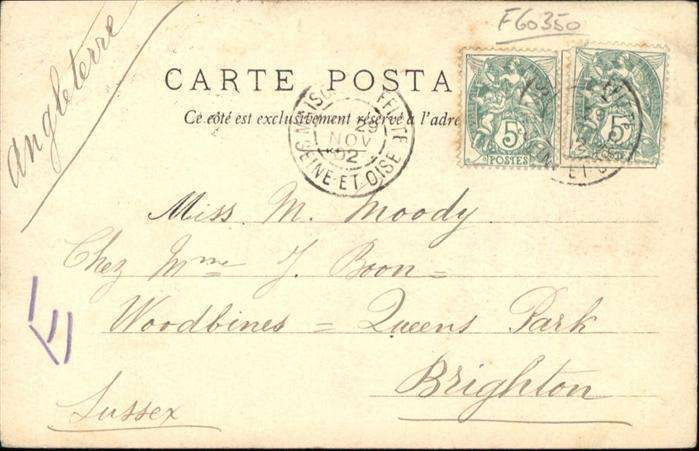 F60350
Angleterre
CARTE POSTA
Ce côté est exclusivement réservé à l'adre
MAISO FFITTE
29
NOV
02
SEINE ET OISE
5c
POSTES
5c
Miss M. Moody
Chez Mme J. Boon =
Woodbines = Queens Park
Brighton
Sussex